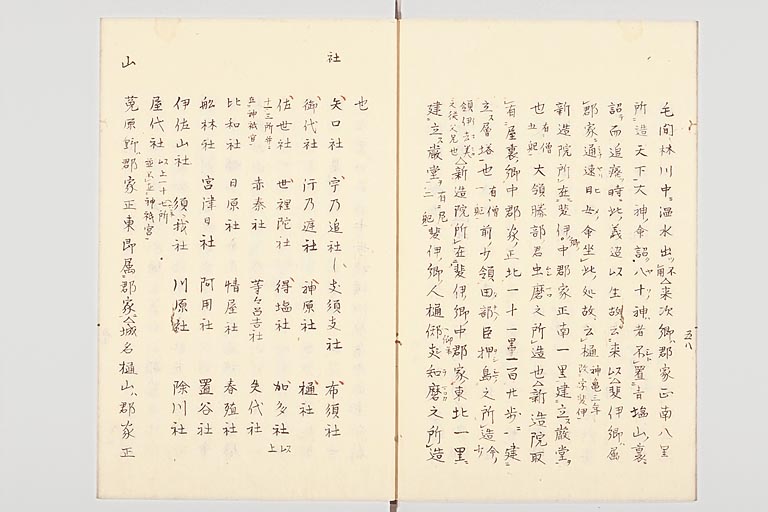 毛間林川中温水出 不用 来次郷郡家正南八里
所造天下大神命詔八十神者不置青垣山裏
詔而追廃時此處追以生故云来以 斐伊郷属
郡家通速日女命坐此処故云樋 神亀三年改字斐伊
新造院所在斐伊郷中郡家正南一里建立厳堂
也 有僧五躯 大領勝部君虫麿之所造也 新造院所在
有屋裏郷中郡家正北一十一里一百廿歩建
立層塔也 有僧一躯 前少領田部臣押島之所造 今少
領伊去美之従父兄也 新造院所在斐伊郷中郡家東北一里
建立厳堂 有尼二躯 斐伊郷人樋印支知麿之所造
也
社
矢口社 宇乃追社 支須支社 布須社
御代社 汙乃遅社 神原社 樋社
佐世社 世裡陀社 得塩社 加多社 以上
十三所并在神祇官 赤秦社 等々呂吉社 矢代社
比和社 日原社 情屋社 春殖社
舩林社 宮津日社 阿用社 置谷社
伊佐山社 須我社 川原社 除川社
屋代社 以上一十七所並不在神祇官
山
莵原野郡家正東即属郡家 城名樋山郡家正
五八